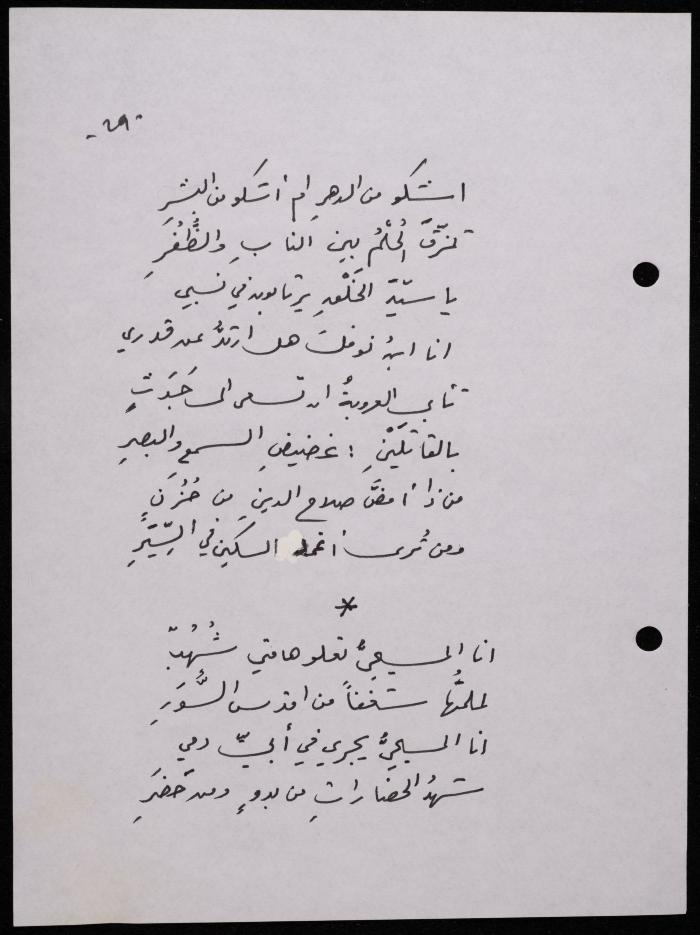 اشكو من الدهرِ ام أشكو من البشرِ
تمزّقَ الحُلْمُ بين النابِ والظُّفُرِ
يا سيّدَ الخَلْقِ يرتابون في نسبي
انا ابنُ نوفلَ هل ارتدُّ عن قدري
تأبى العروبةُ ان تسعى الى جَدَثٍ
بالقاتلَيْنِ : غضيضِ السمعِ والبصرِ
من ذا أمضَّ صلاح الدين من حُزُنٍ
ومن تُرى أغمد السكين في السِّيَرِ
*
انا المسيحيُّ تعلو هامتي شُهُبٌ
لملمتُها شغفاً من اقدس السُّوَرِ
انا المسيحيُّ يجري في أبيّ دمي
شهدُ الحضاراتِ من بدوٍ ومن حَضَرِ